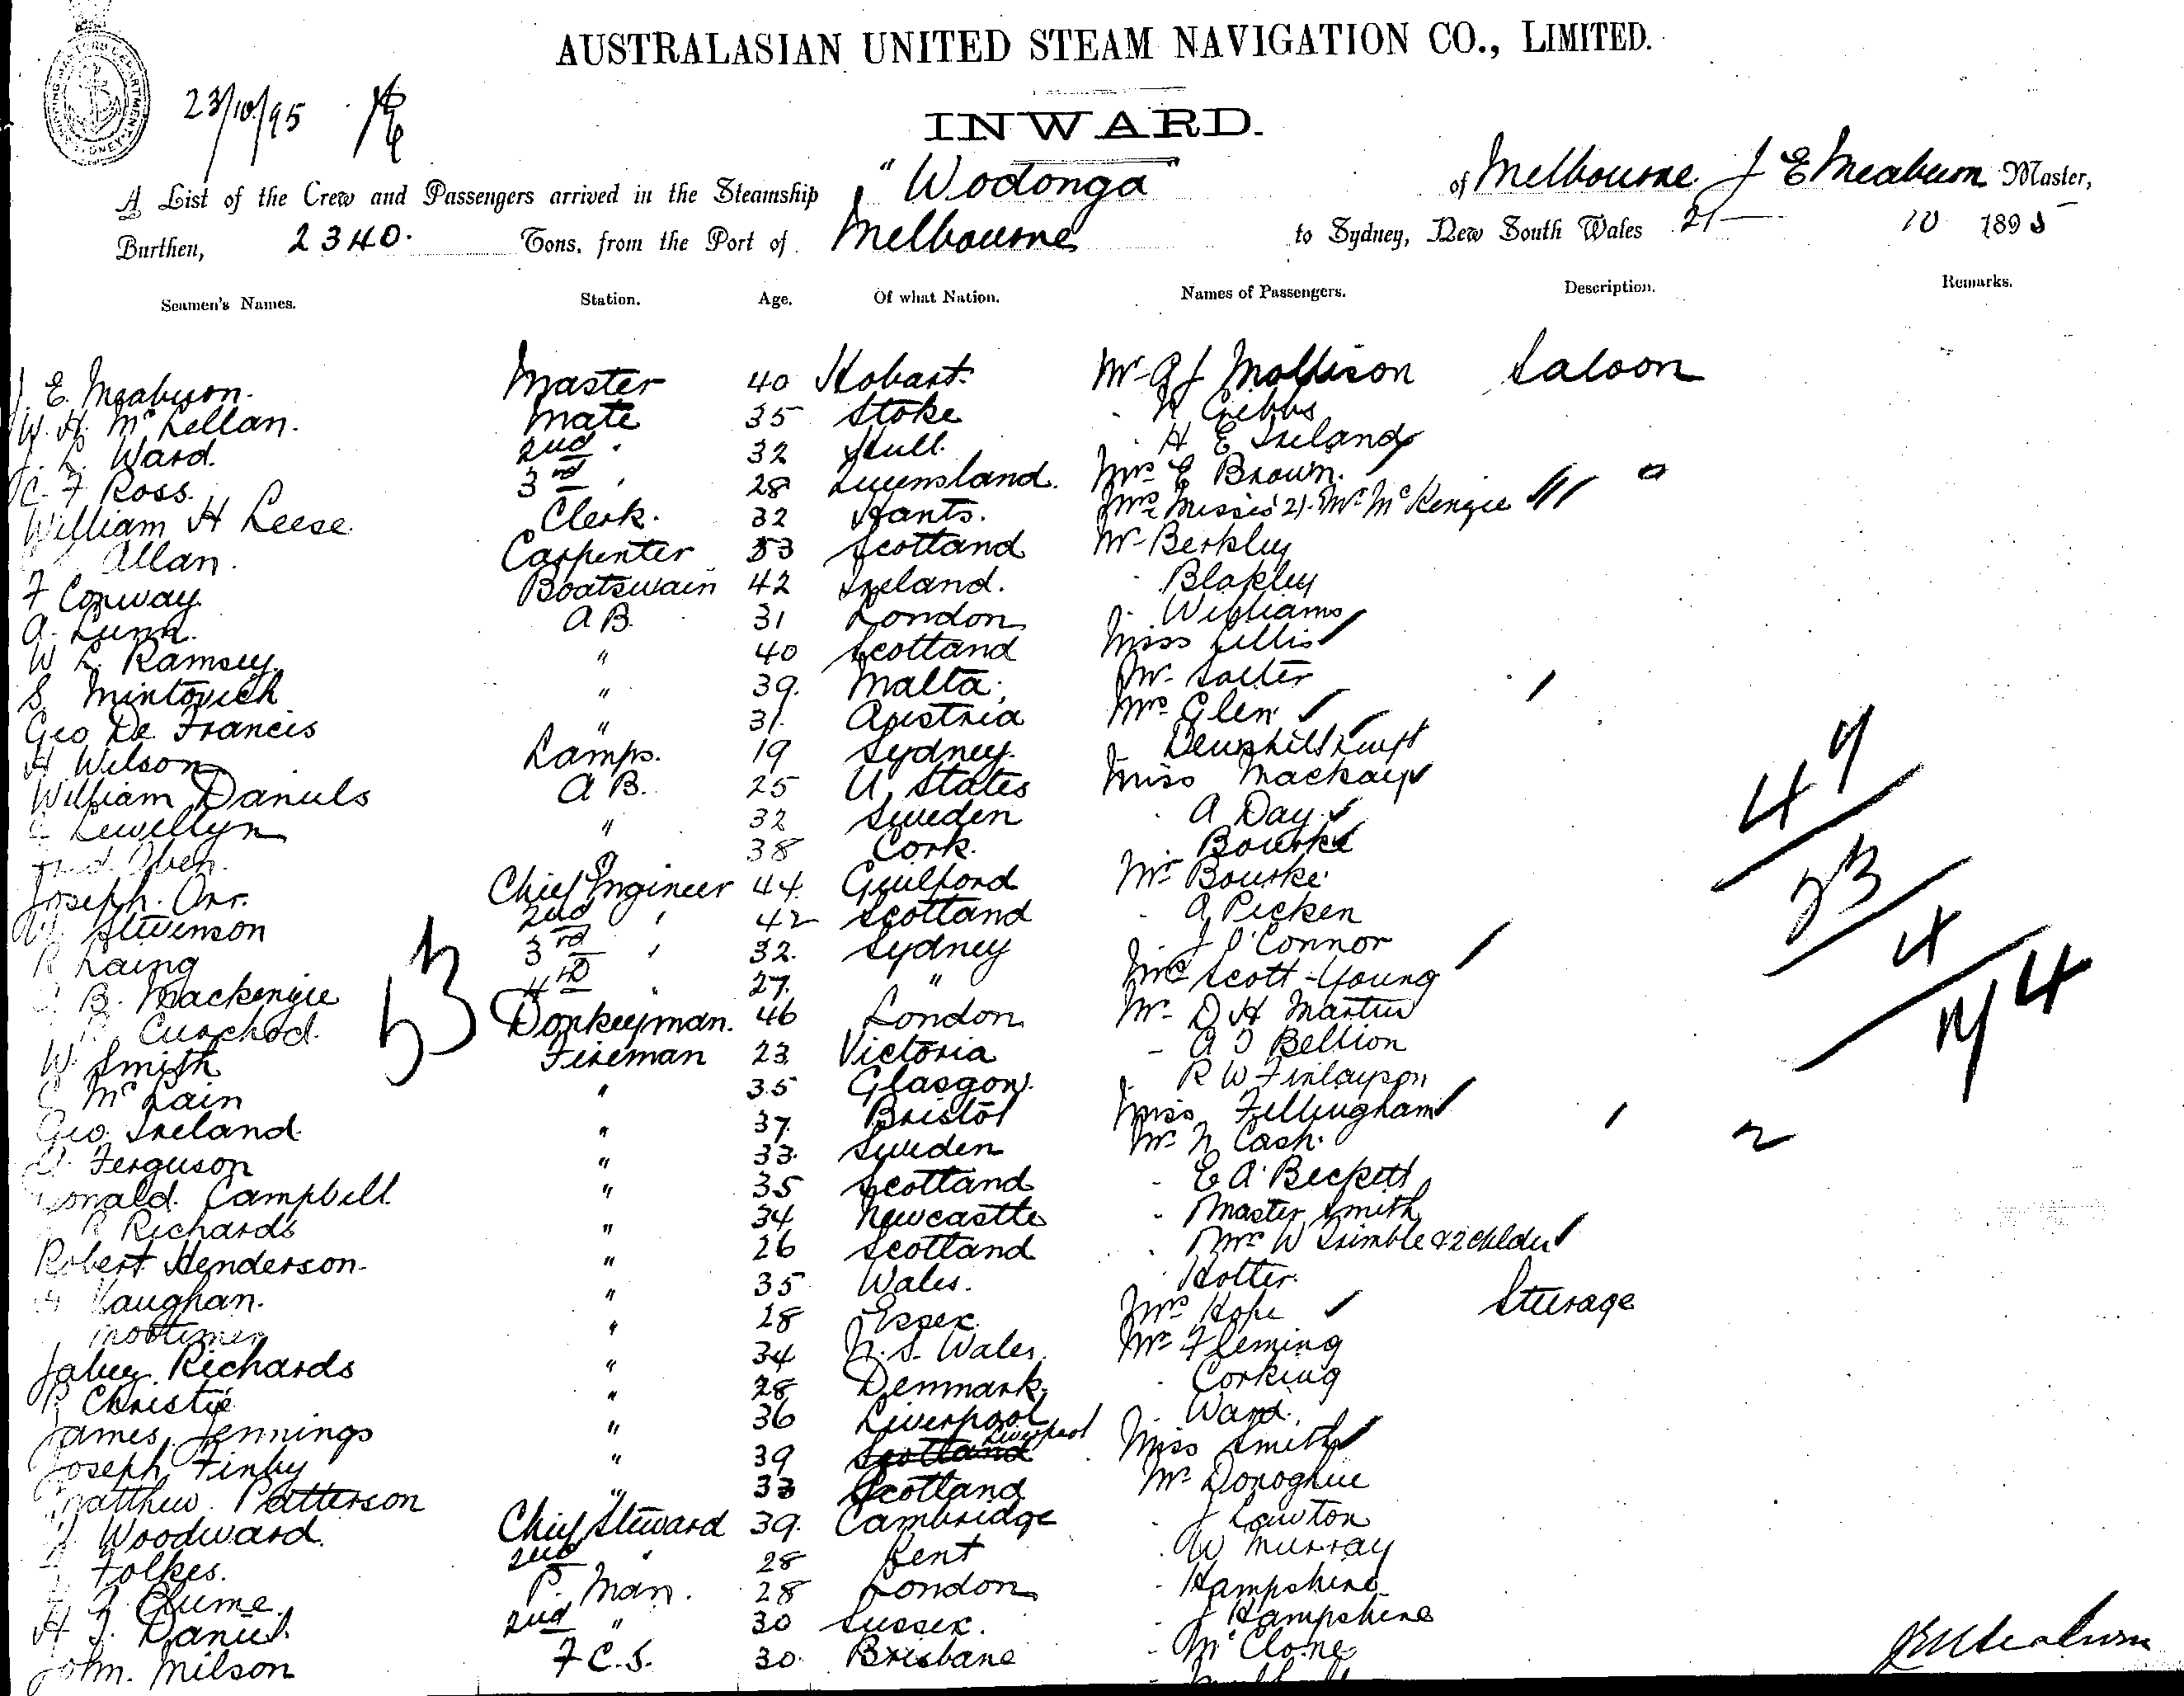 AUSTRALASIAN UNITED STEAM NAVIGATION CO., LIMITED.
23/10/95
INWARD.
A List of the Crew and Passengers arrived in the Steamship "Wodonga" of Melbourne. J E Meaburn Master,
Burthen, 2340. Tons, from the Port of Melbourne to Sydney, New South Wales 21 — 10 1895
Seamen's Names. Station. Age. Of what Nation. Names of Passengers. Description. Remarks.
J. E. Meaburn. Master 40 Hobart. Mr A J Mollison Saloon
W. H. McLellan. Mate 35 Stoke " Gibbs
J. L. Ward. 2nd " 32 Hull. " H E Ireland
C. F Ross. 3rd " 28 Queensland. Mrs E Brown.
William H Leese. Clerk. 32 Hants. Mrs Misses 2). Mr McKenzie
Allan. Carpenter 53 Scotland Mr Berkley
F Conway Boatswain 42 Ireland. " Blakley
A. Lunn. A B. 31 London " Williams
W L. Ramsey " 40 Scotland Miss Lillis
S. Mintovich " 39. Malta. Mr Salter
Geo De Francis " 31. Austria Mrs Glen
H Wilson Lamps. 19 Sydney. "
William Daniels A B. 25 U. States Miss Mackay
Lewellyn " 32 Sweden " A Day
" 38 Cork. " Bourke
Joseph. Orr. Chief Engineer 44. Guilford Mr Bourke
Stevenson 2nd " 42 Scotland " A Picken
R Laing 3rd " 32. Sydney " J O'Connor
B. Mackenzie 4th " 27. " Mrs Scott-Young
Cuechod. Donkeyman. 46 London Mr D H Martin
W. Smith Fireman 23 Victoria " A J Bellion
C McLain " 35 Glasgow. " R W Finlayson
Geo. Ireland " 37. Bristol Miss Fillingham
Ferguson " 33. Sweden Mr N Cash.
Donald. Campbell " 35 Scotland " E A Beckett
R Richards " 34 Newcastle " Master Smith
Robert Henderson. " 26 Scotland " Mrs W Trimble & 2 childn
Vaughan. " 35 Wales. " Hotter.
Mortimer " 28 Essex. Mrs Hope Steerage
Jabez Richards " 34 N. S. Wales. Mr Fleming
R Christie " 28 Denmark. " Corking
James Jennings " 36 Liverpool " Ward.
Joseph Finby " 39 Scotland Liverpool Miss Smith
Matthew. Patterson " 33 Scotland Mr Donoghue
J Woodward. Chief Steward 39. Cambridge " J Lawton
Folkes. 2nd " 28 Kent " W Murray
Plume. P. Man. 28 London " Hampshire
H J. Daniel. 2nd " 30 Sussex. " J Hampshire
John. Milson F C. S. 30. Brisbane " McClone
53
4